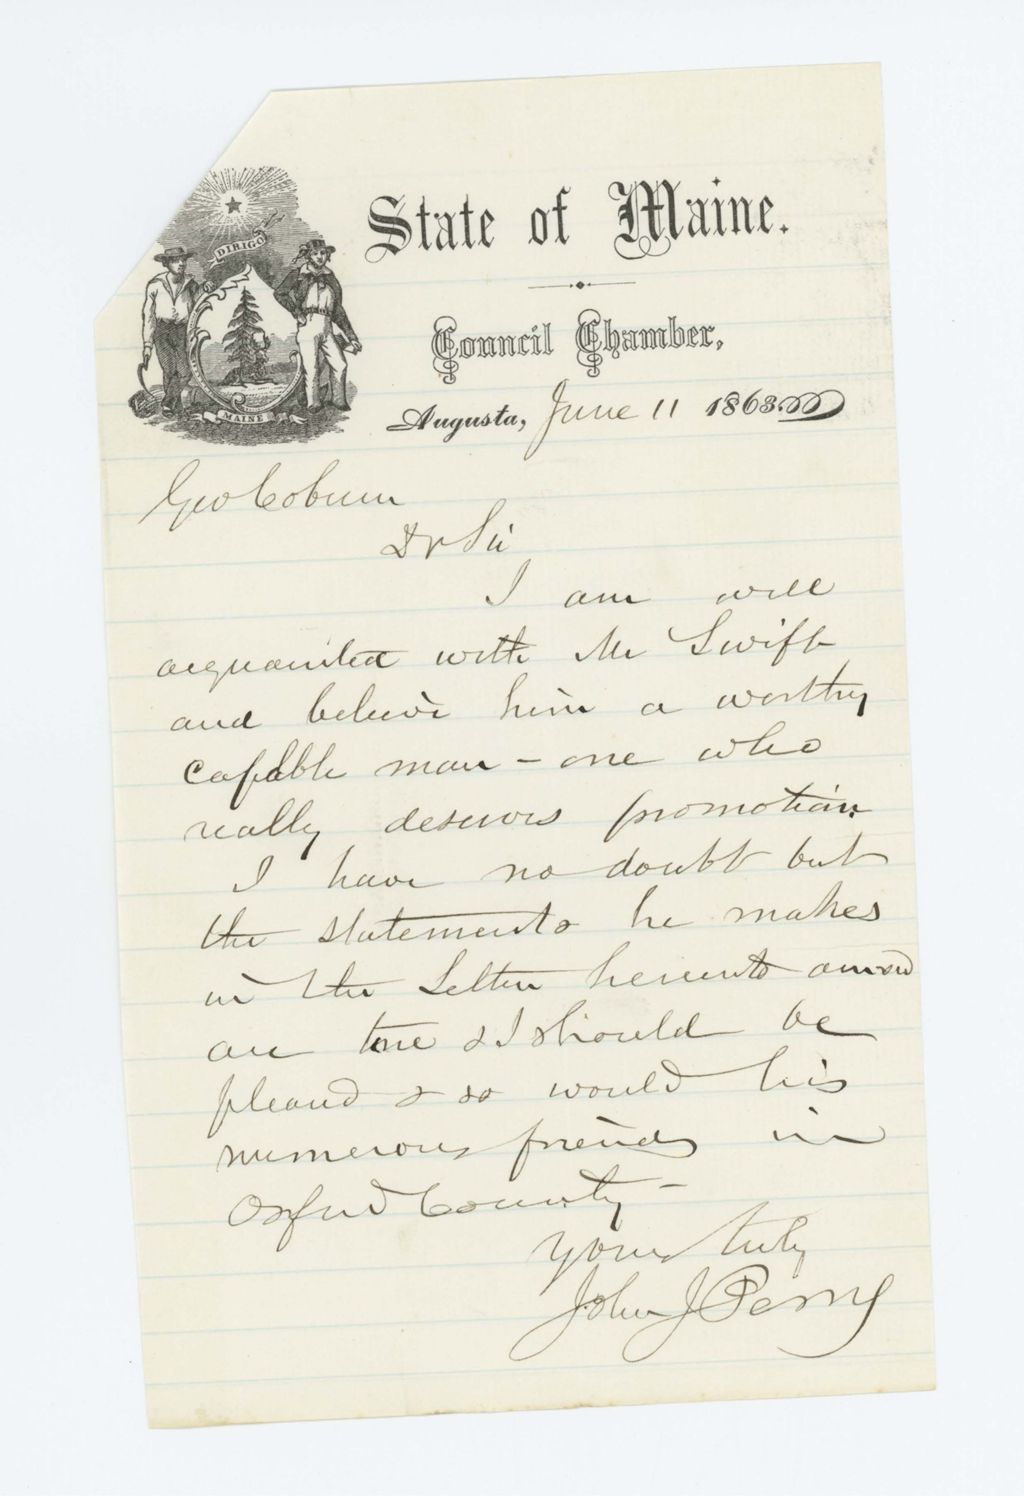 DIRIGO
MAINE
State of Maine.
Council Chamber,
Augusta, June 11 1863.
Gov Coburn
Dr Sir
I am well
acquainted with Mr Swift
and believe him a worthy
capable man - one who
really deserves promotion.
I have no doubt but
the statements he makes
in the Letter hereunto annexed
are true & I should be
pleased & so would his
numerous friends in
Oxford County -
Yours truly
John J Perry